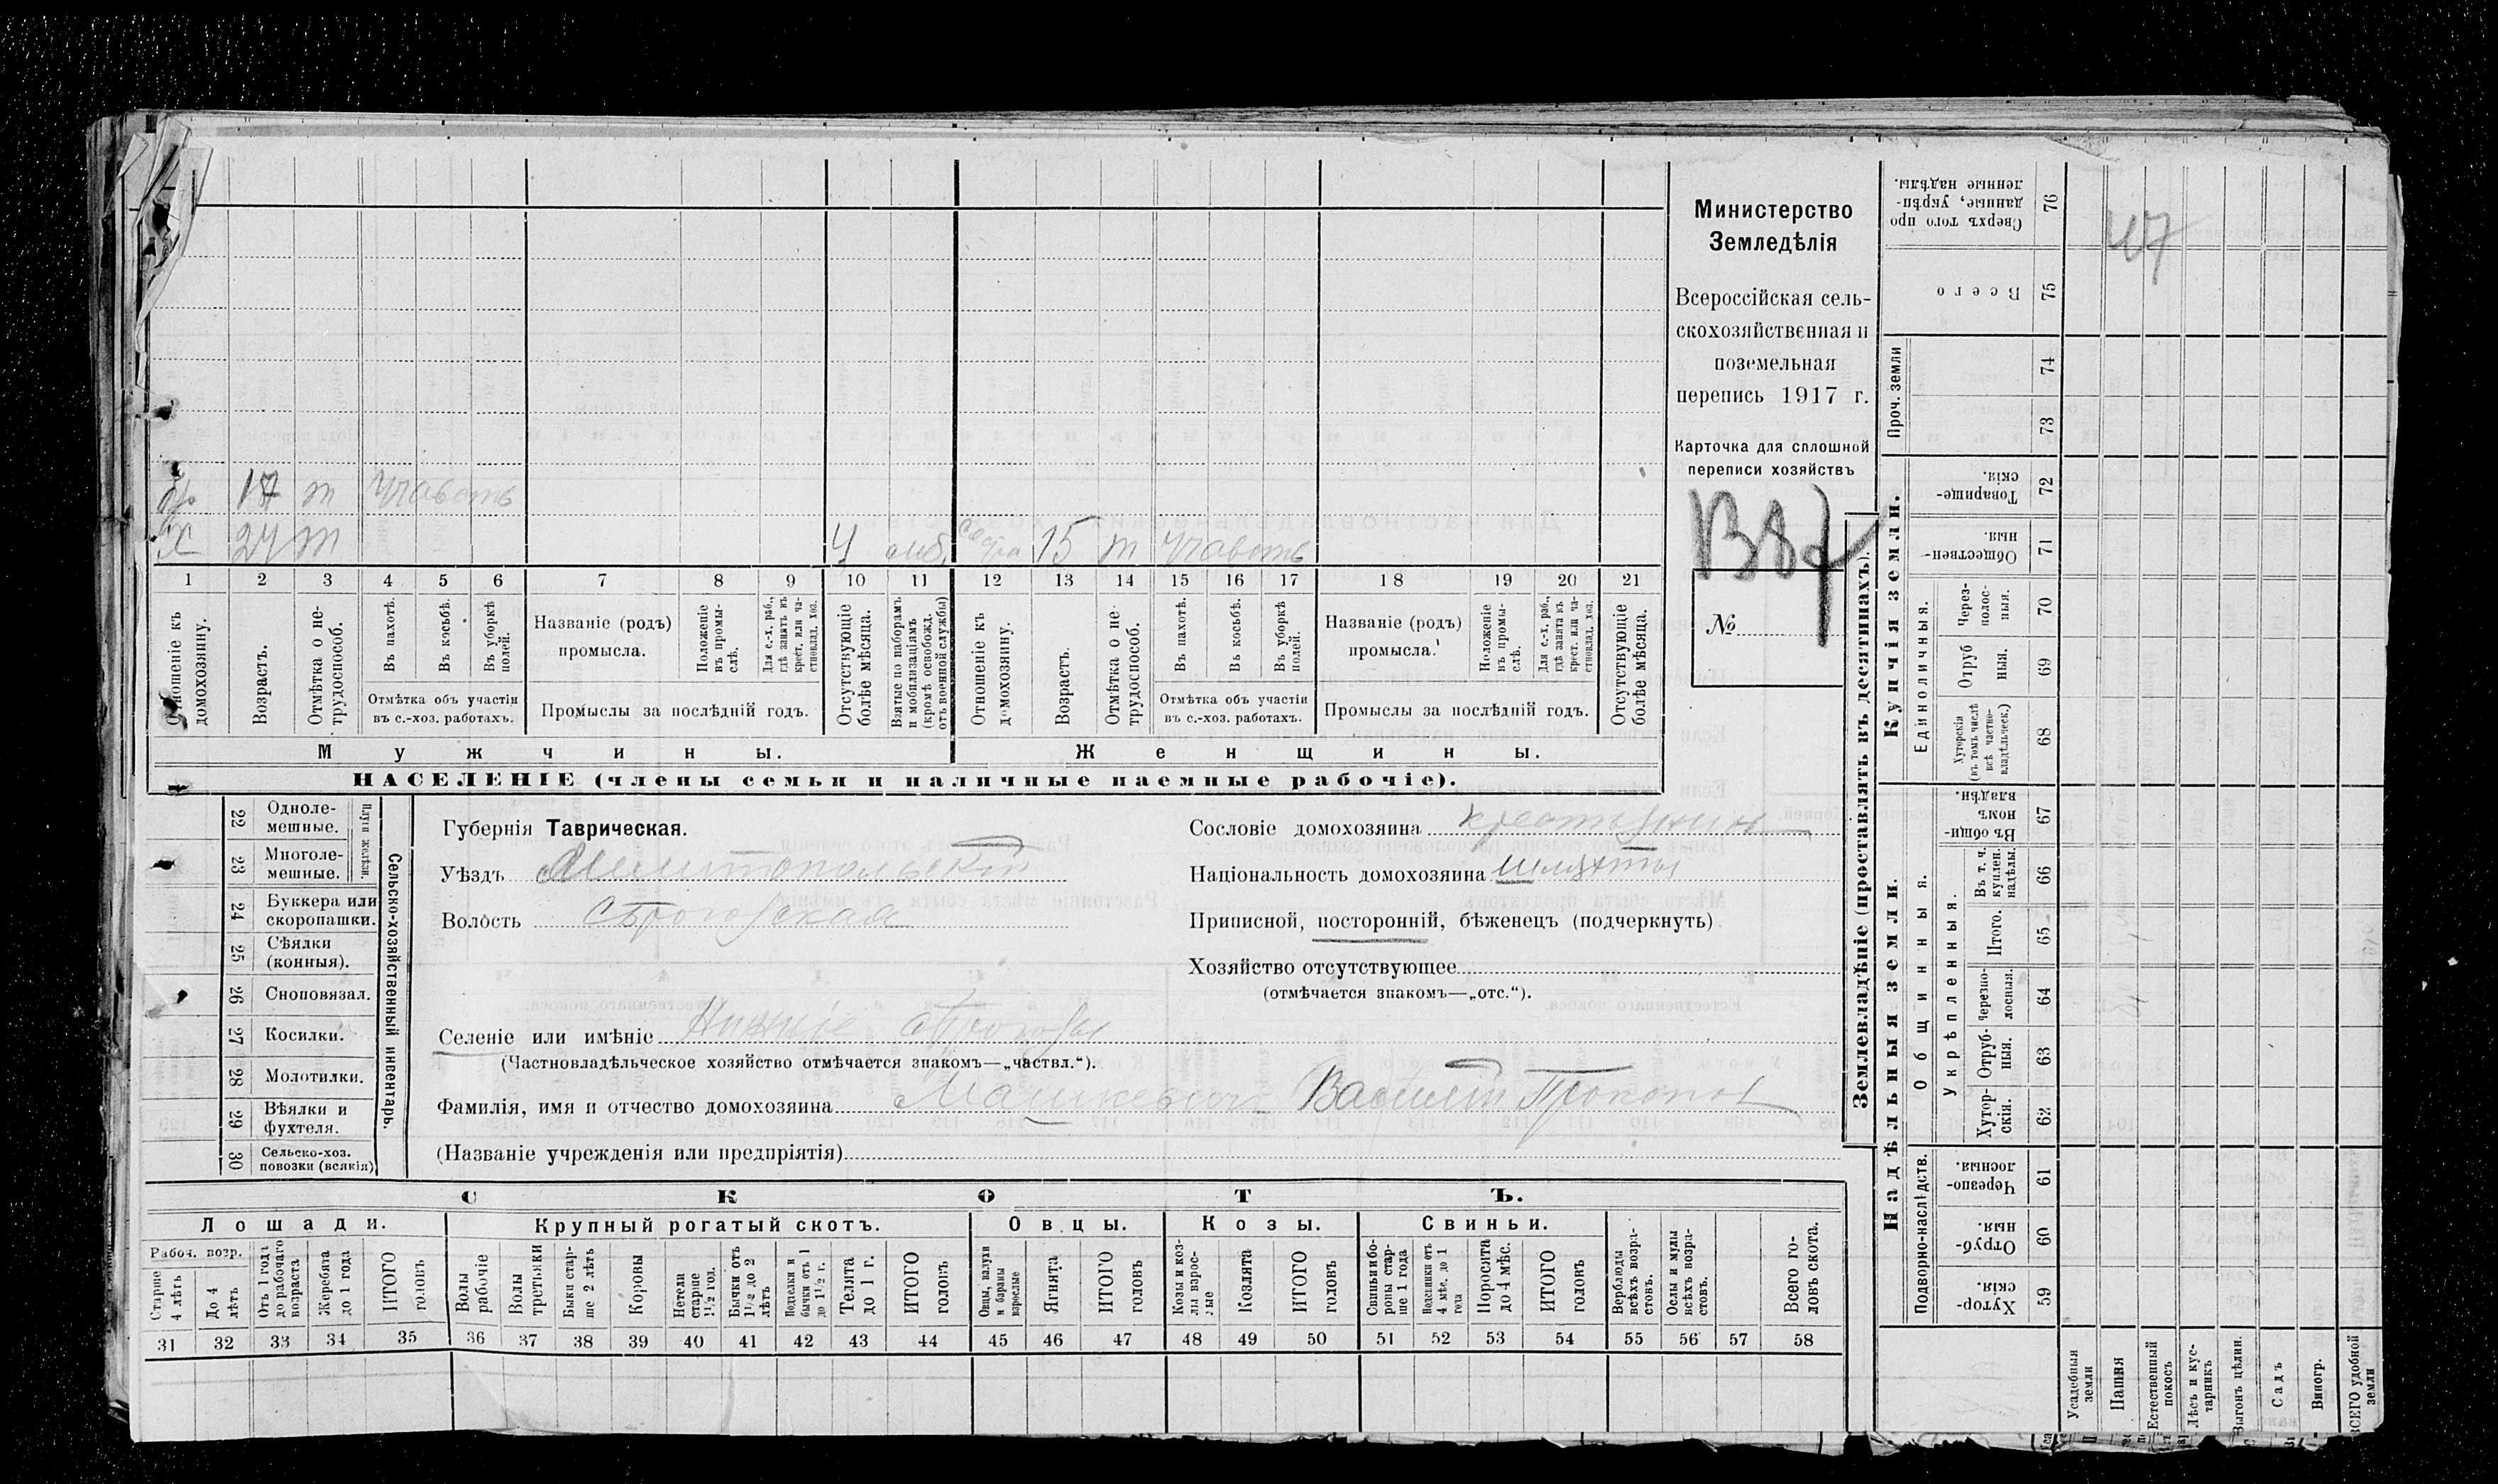 бр 17 т учавств
Х 24 т 4 моб. сестра 15 т учавств
1 2 3 4 5 6 7 8 9 10 11 12 13 14 15 16 17 18 19 20 21
Отношеніе къ домохозяину.
Возрастъ.
Отмѣтка о нетрудоспособ.
Въ пахотѣ.
Въ косьбѣ.
Въ уборкѣ полей.
Отмѣтка объ участіи
въ с.-хоз. работахъ.
Названіе (родъ)
промысла.
Положеніе въ промыслѣ.
Для с.-х. раб., гдѣ занятъ въ крест. или частновлад. хоз.
Промыслы за послѣдній годъ.
Отсутствующіе болѣе мѣсяца.
Взятые по наборамъ и мобилизаціямъ (кромѣ освобожд. отъ военной службы)
Отношеніе къ домохозяину.
Возрастъ.
Отмѣтка о нетрудоспособ.
Въ пахотѣ.
Въ косьбѣ.
Въ уборкѣ полей.
Отмѣтка объ участіи
въ с.-хоз. работахъ.
Названіе (родъ)
промысла.
Положеніе въ промыслѣ.
Для с.-х. раб., гдѣ занята въ крест. или частновлад. хоз.
Промыслы за послѣдній годъ.
Отсутствующіе болѣе мѣсяца.
Мужчины. Женщины.
НАСЕЛЕНІЕ (члены семьи и наличные наемные рабочіе).
Министерство
Земледѣлія
Всероссійская сель-
скохозяйственная и
поземельная
перепись 1917 г.
Карточка для сплошной
переписи хозяйствъ
№
22 Одноле-
мешные.
23 Многоле-
мешные.
Плуги желѣзн.
24 Буккера или
скоропашки.
25 Сѣялки
(конныя).
26 Сноповязал.
27 Косилки.
28 Молотилки.
29 Вѣялки и
фухтеля.
30 Сельско-хоз.
повозки (всякія)
Сельско-хозяйственный инвентарь.
Губернія Таврическая.
Уѣздъ Мелитопольскій
Волость Сѣрогозская
Сословіе домохозяина крестьянин
Національность домохозяина
Приписной, посторонній, бѣженец (подчеркнуть)
Хозяйство отсутствующее
(отмѣчается знакомъ—„отс.“).
Селеніе или имѣніе Нижніе Сѣрогозы
(Частновладѣльческое хозяйство отмѣчается знакомъ—„частвл.“).
Фамилія, имя и отчество домохозяина Машкевич Василій Прокопов
(Названіе учрежденія или предпріятія)
СКОТЪ.
Лошади. Крупный рогатый скотъ. Овцы. Козы. Свиньи.
Рабоч. возр.
Старше 4 лѣтъ
До 4 лѣтъ
Отъ 1 года до рабочаго возраста
Жеребята до 1 года
ИТОГО головъ
Волы рабочіе
Волы третьяки
Быки старше 2 лѣтъ
Коровы
Нетели старше 1½ год.
Бычки отъ 1½ до 2 лѣтъ
Подтелки и бычки отъ 1 до 1½ г.
Телята до 1 г.
ИТОГО головъ
Овцы, валухи и бараны взрослые
Ягнята
ИТОГО головъ
Козы и козлы взрослые
Козлята
ИТОГО головъ
Свиньи и боровы старше 1 года
Подсвинки отъ 4 мѣс. до 1 года
Поросята до 4 мѣс.
ИТОГО головъ
Верблюды всѣхъ возрастовъ.
Ослы и мулы всѣхъ возрастовъ.
Всего головъ скота.
31 32 33 34 35 36 37 38 39 40 41 42 43 44 45 46 47 48 49 50 51 52 53 54 55 56 57 58
Землевладѣніе (проставлять въ десятинахъ).
Купчія земли.
Надѣльныя земли.
Сверхъ того проданные, укрѣпленные надѣлы. 76
Всего 75
Проч. земли 74 73
Товарищескія. 72
Общественныя. 71
Единоличныя.
Черезполосныя. 70
Отрубныя. 69
Хуторскія (въ томъ числѣ всѣ частновладѣльческ.) 68
Общинныя.
Въ общин. владѣн. 67
Укрѣпленныя.
Въ т. ч. куплен. надѣлы. 66
Итого. 65
Черезполосныя. 64
Отрубныя. 63
Хуторскія. 62
Подворно-наслѣдств.
Черезполосныя. 61
Отрубныя. 60
Хуторскія. 59
Усадебныя земли
Пашня
Естественный покосъ
Лѣсъ и кустарникъ
Выгонъ цѣлин.
Садъ
Виногр.
ВСЕГО удобной земли